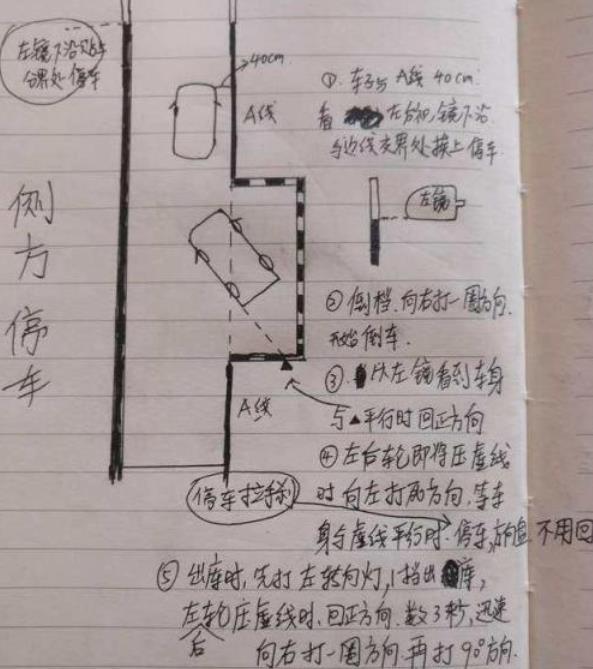 左镜下沿贴车
分界处停车
40cm.
A线
① 车子与A线 40cm.
看 左方向镜下沿
与边线交界处接上停车.
左镜
侧方停车
② 倒档.向右打一圈方向.
开始倒车.
③ 从左镜看到车身
与▲平行时回正方向
A线
④ 左后轮即将压虚线
时向左打死方向,等车
身与虚线平行时.停车,方向盘不用回
停车拉手刹
⑤ 出库时,先打左转向灯,1挡出库,
左后轮压虚线时.回正方向.数3秒,迅速
向右打一圈方向.再打90°方向.